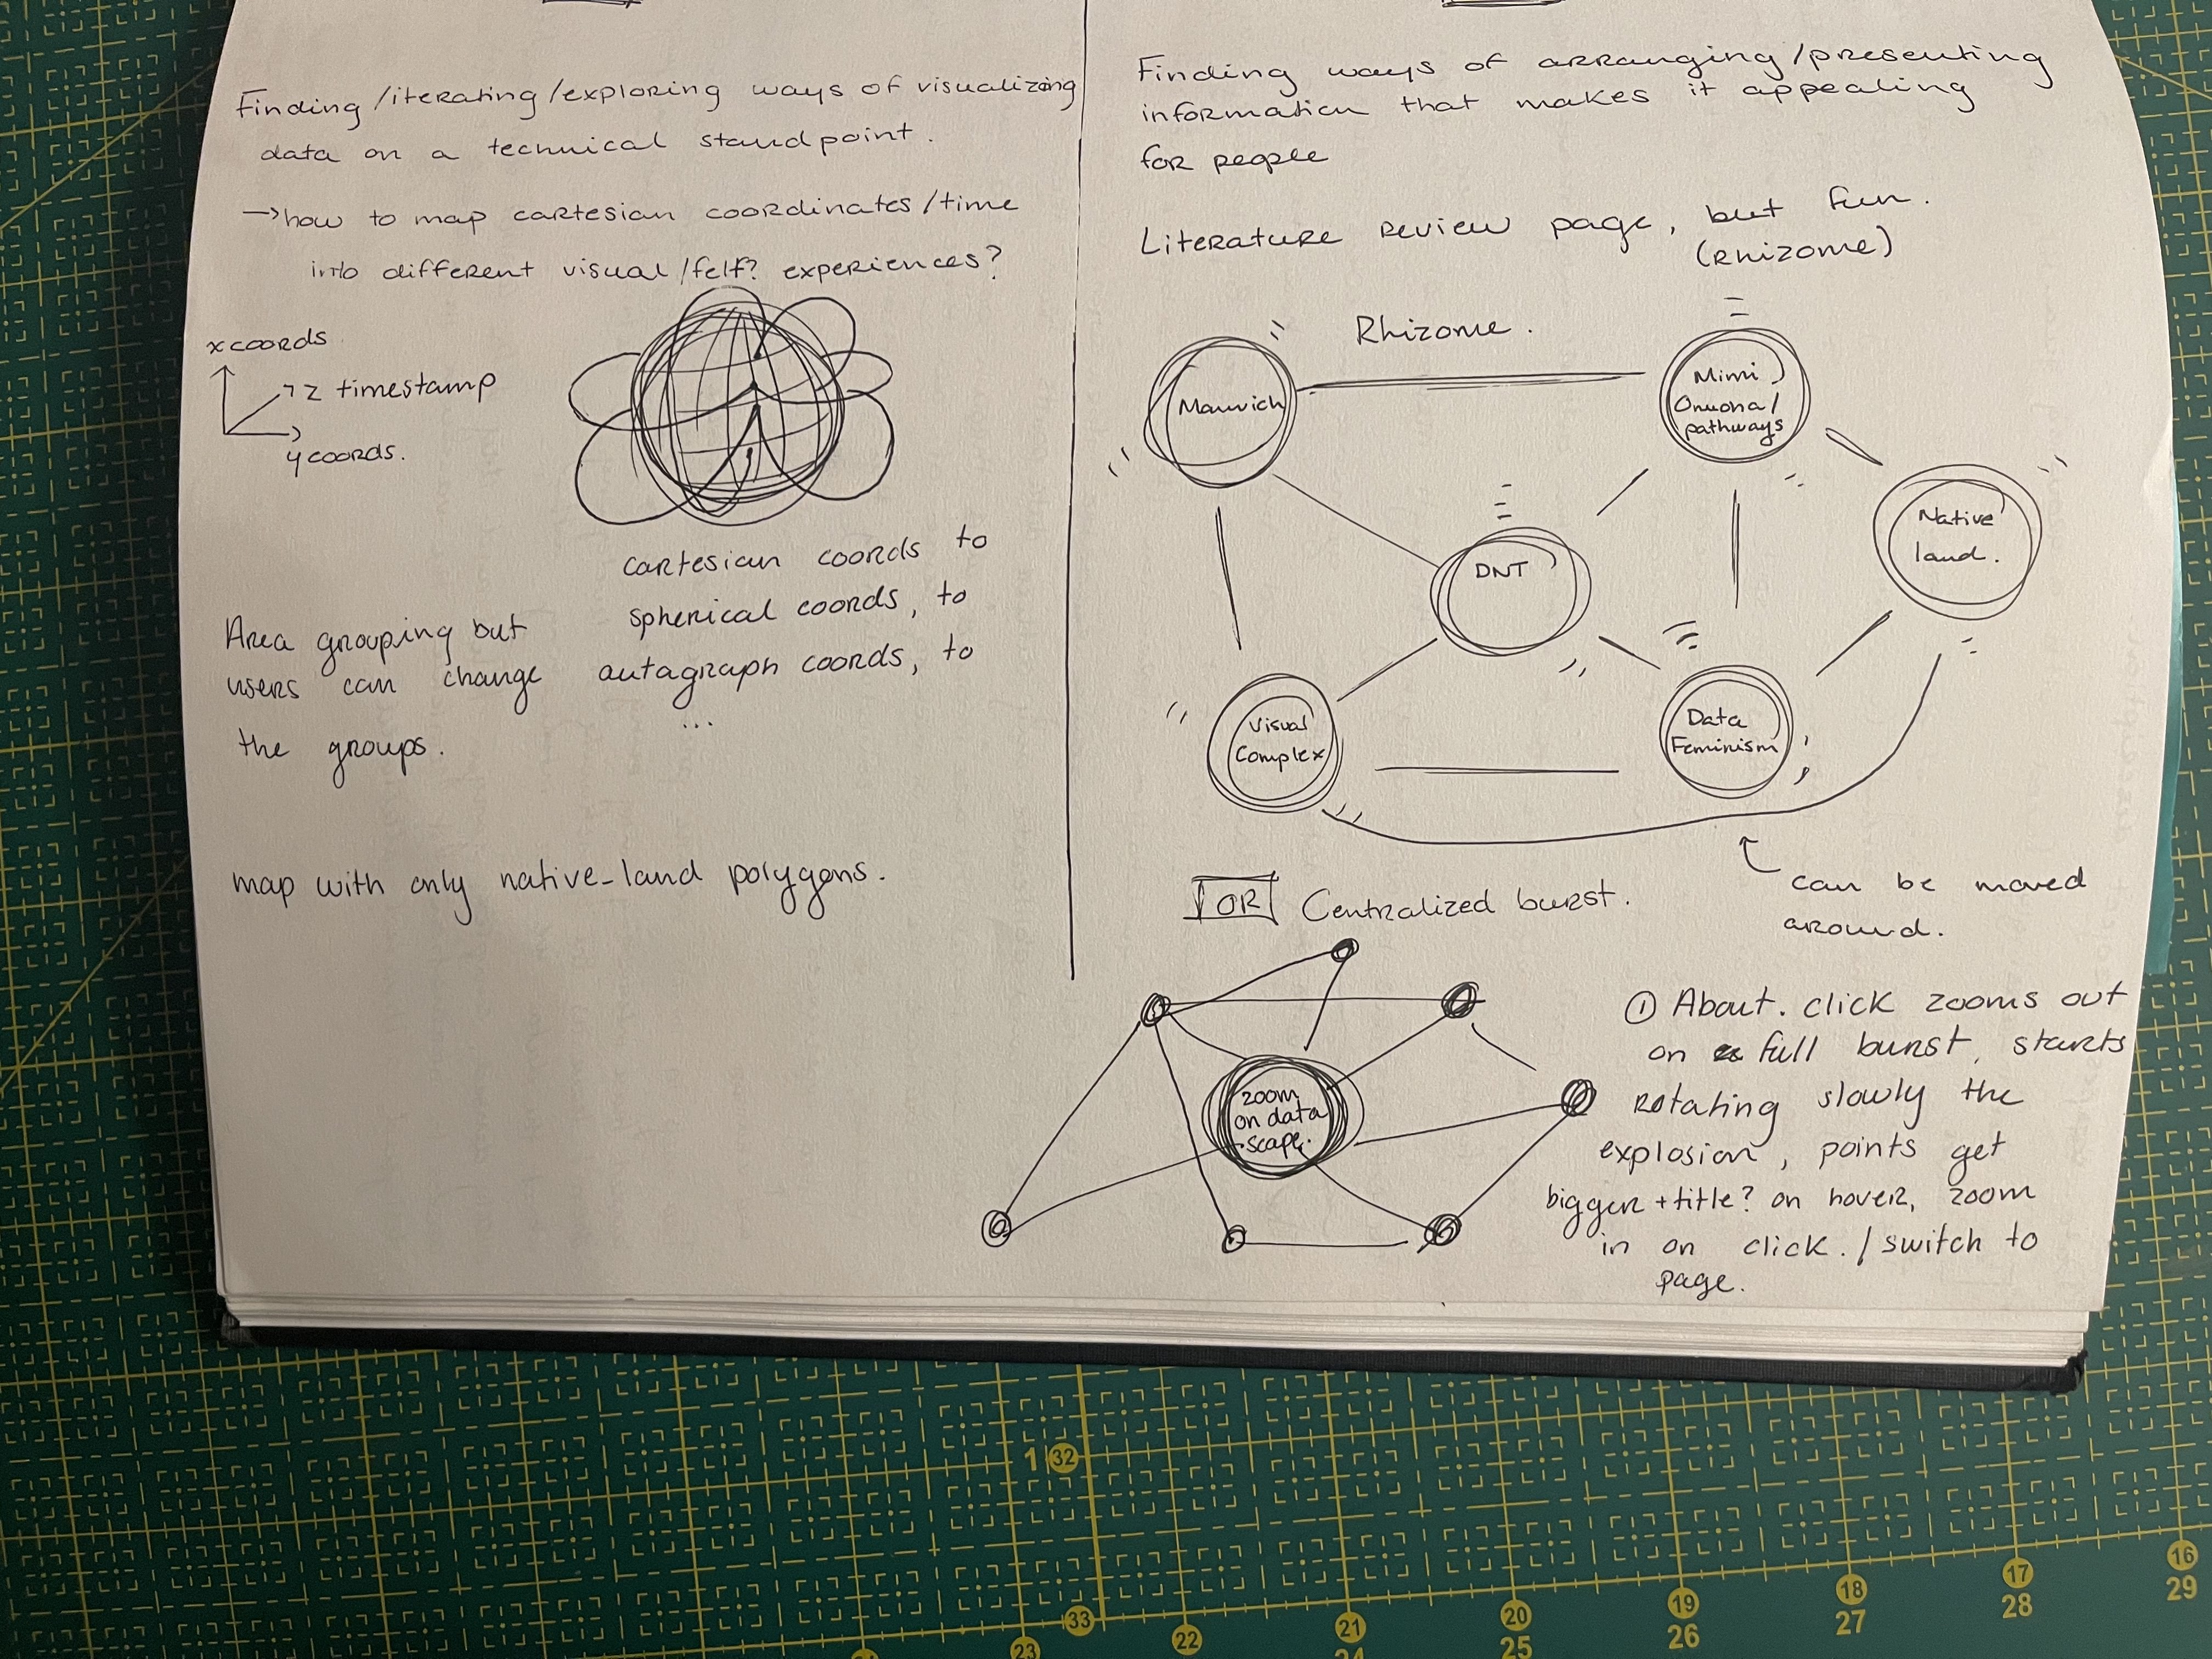 Finding/iterating/exploring ways of visualizing
data on a technical standpoint.
→how to map cartesian coordinates/time
into different visual/felt? experiences?
x coords
z timestamp
y coords.
cartesian coords to
spherical coords, to
autagraph coords, to
...
Area grouping but
users can change
the groups.
map with only native-land polygons.
Finding ways of arranging/presenting
information that makes it appealing
for people
Literature review page, but fun.
(rhizome)
Rhizome.
Manvich
Mimi
Onuoha/
pathways
Native
land.
DNT
Visual
Complex
Data
Feminism
can be moved
around.
OR Centralized burst.
zoom
on data
scape.
① About. click zooms out
on full burst, starts
rotating slowly the
explosion, points get
bigger + title? on hover, zoom
in on click. / switch to
page.
1 32
33
16
29
17
28
18
27
19
26
20
25
21
24
22
23